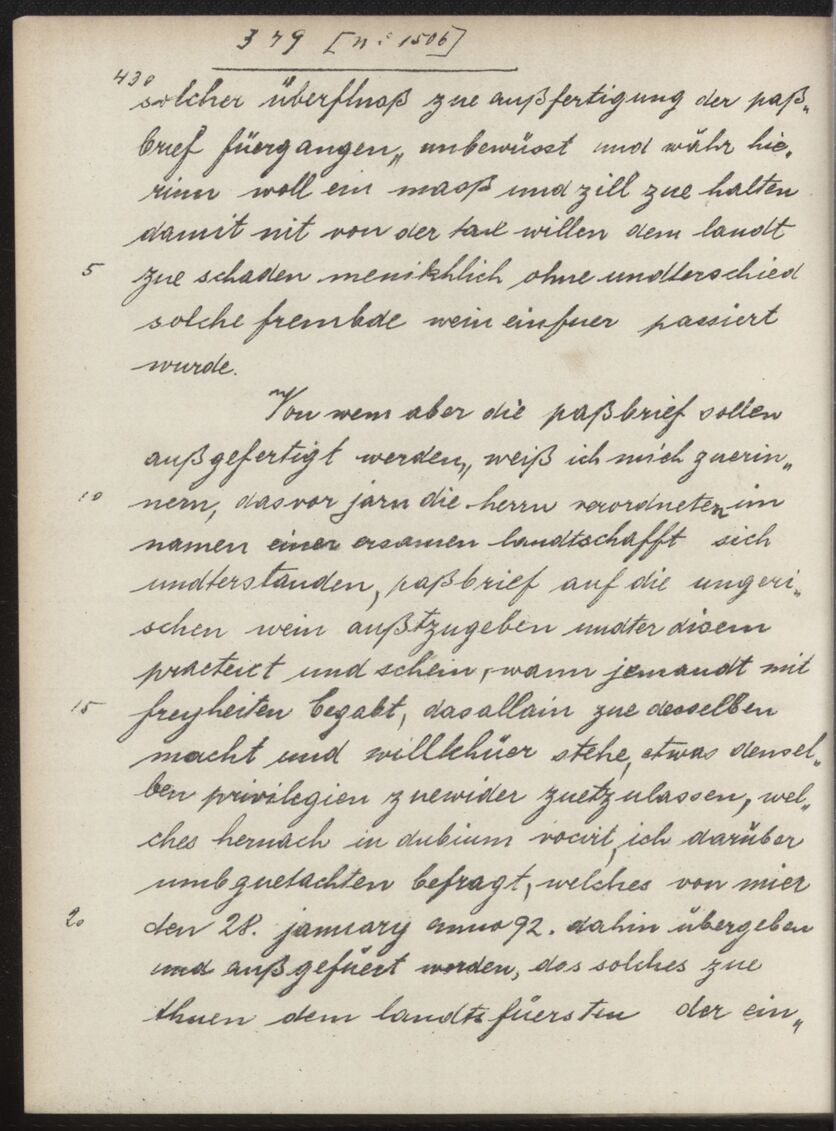 379 [nº 1506]
430
solcher überfluoß zue außfertigung der paß„
brief füergangen„ unbewüsst und währ hie„
rinn woll ein maaß und zill zue halten
damit nit von der tax willen dem landt
5 zue schaden menikhlich ohne undterschied
solche frembde wein einfuer passiert
wurde.
Von wem aber die paßbrief sollen
außgefertigt werden„ weiß ich mich zuerin„
10 nern, das vor jarn die herrn verordneten im
namen einer ersamen landtschafft sich
undterstanden, paßbrief auf die ungeri„
schen wein außtzugeben undter disem
practext und schein, wann jemandt mit
15 freyheiten begabt, das allain zue desselben
macht und willkhüer stehe, etwas densel„
ben privilegien zuewider zuetzulassen, wel„
ches hernach in dubium vocirt, ich darüber
umb guetachten befragt, welches von mier
20 den 28. january anno 92. dahin übergeben
und außgefüert worden, das solches zue
thuen dem landtsfüersten der ein„